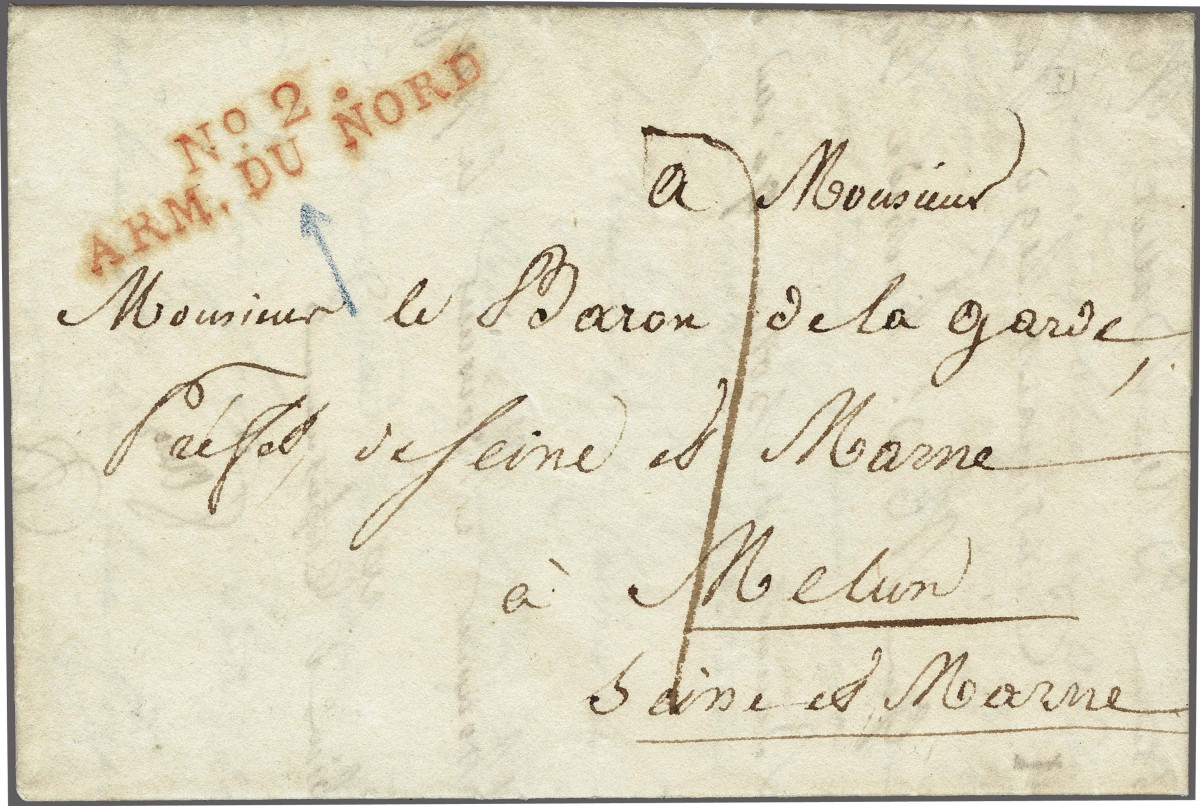 No. 2.
ARM. DU NORD
a Monsieur
Monsieur le Baron de la garde,
Préfet de Seine et Marne
à Melun
Seine et Marne
7